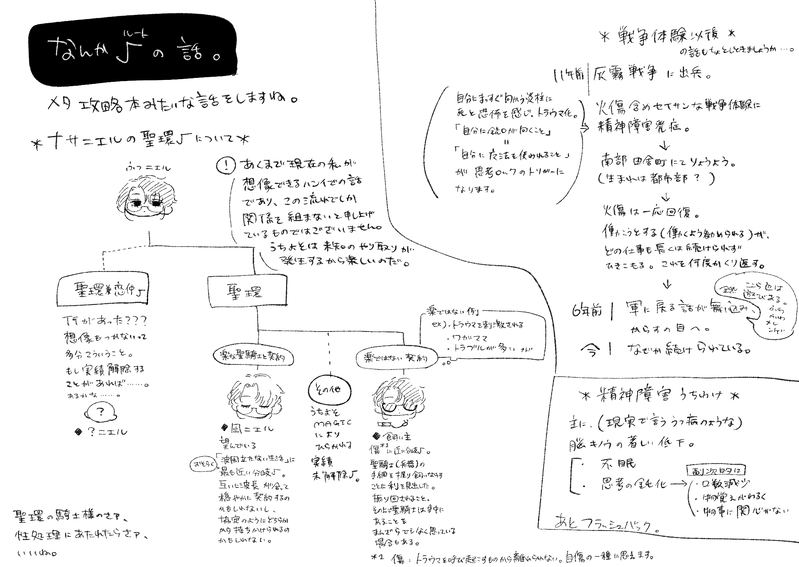 なんか♪の話。
ルート
メタ攻略本みたいな話をしますね。
*ナサニエルの聖環♪について*
ふつニエル
! あくまで現在の私が
想像できるハンイでの話
であり、この流れでしか
関係を組まないと申し上げ
ているものではございません。
うちよそは未知のやり取りが
発生するから楽しいのだ。
聖環
何があった???
想像もつかないって
多分こういうこと。
もし実績解除する
ことがあれば……。
あるかな……。
?
◆?ニエル
聖環の騎士様のさァ、
性処理にあたれたらさァ、
いいね。
聖騎士と契約
◆凪ニエル
望んでいる
おそらく
「波風立たない生活」に
最も近い分岐♪。
互いに波長が合って
穏やかに契約するの
かもしれないし、
協定のようにどちらか
から持ちかけられるの
かもしれない。
その他
うちよそ
MAGIC
により
ひらかれる
実績
未解除♪。
楽ではない例
ex)・トラウマを刺激される
・ワガママ
・トラブルが多い etc
楽ではない契約
◆飼い主
傷*1に近い分岐♪。
聖騎士(兵器)の
手綱を握り飼いならす
ことに利を見出した。
振り回されること、
そのじつ聖騎士は手中に
あることを
まんざらでもなく思っている
場合もある。
*1 傷:トラウマを呼び起こすものから離れられない。自傷の一種に思えます。
*戦争体験以後*
の話もちょとしときましょうか…。
11年前 灰霧戦争に出兵。
火傷含めてサンな戦争体験に
精神障害発症。
自分にまっすぐ向かう資性に
死と恐怖を感じ、トラウマ化。
「自分に銃口が向くこと」
=
「自分に魔法を使われること」
が思考ロックのトリガーに
なります。
南部田舎町にてりょうよう。
(生まれは都市部?)
火傷は一応回復。
働こうとする(働くよう勧められる)が、
どの仕事も長くは続けられず
ひきこもる。これを何度かくり返す。
6年前 軍に戻る話が舞い込み、
からすの目へ。
今! なぜか続けられている。
*精神障害うちわけ*
主に、(現実で言ううつ病のような)
脳キノウの著しい低下。
・不眠
・思考の鈍化
副次的に
・口数減少
・物覚えがわるく
・物事に関心がない
あとフラッシュバック。